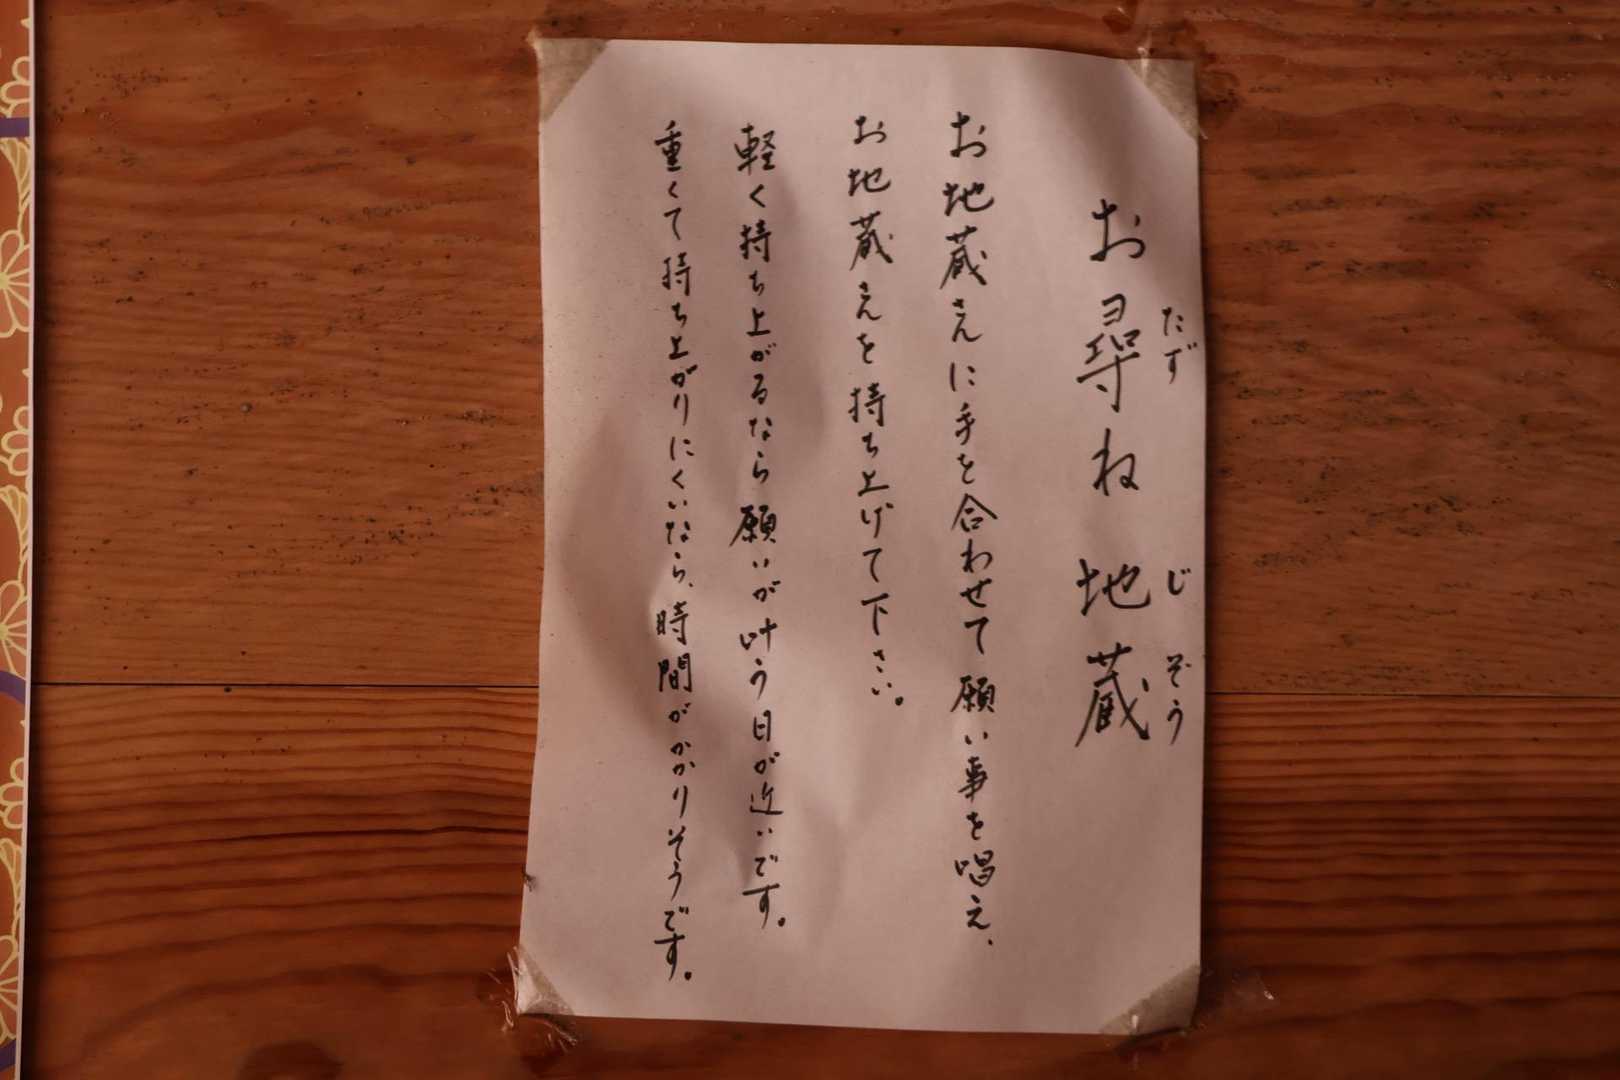 お尋ね地蔵
たず じぞう
お地蔵さんに手を合わせて願い事を唱え、
お地蔵さんを持ち上げて下さい。
軽く持ち上がるなら願いが叶う日が近いです。
重くて持ち上がりにくいなら、時間がかかりそうです。